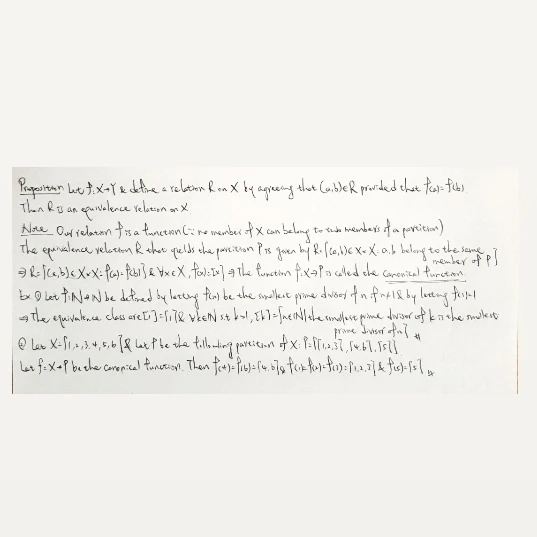 Proposition Let f: X→Y & define a relation R on X by agreeing that (a,b)∈R provided that f(a)=f(b)
Then R is an equivalence relation on X
Note Our relation f is a function (∵ no member of X can belong to two members of a partition)
The equivalence relation R that yields the partition P is given by R={(a,b)∈X×X: a,b belong to the same member of P}
⇒ R={(a,b)∈X×X: f(a)=f(b)} & ∀x∈X, f(x)=[x] ⇒ The function f: X→P is called the canonical function.
Ex ① Let f: N→N be defined by letting f(n) be the smallest prime divisor of n if n≠1 & by letting f(1)=1
⇒ The equivalence class are [1]={1} & ∀k∈N s.t k>1, [k]={n∈N| the smallest prime divisor of k is the smallest prime divisor of n} #
② Let X={1,2,3,4,5,6} & let P be the following partition of X: P={{1,2,3},{4,6},{5}}
Let f: X→P be the canonical function. Then f(4)=f(6)={4,6} & f(1)=f(2)=f(3)={1,2,3} & f(5)={5} #